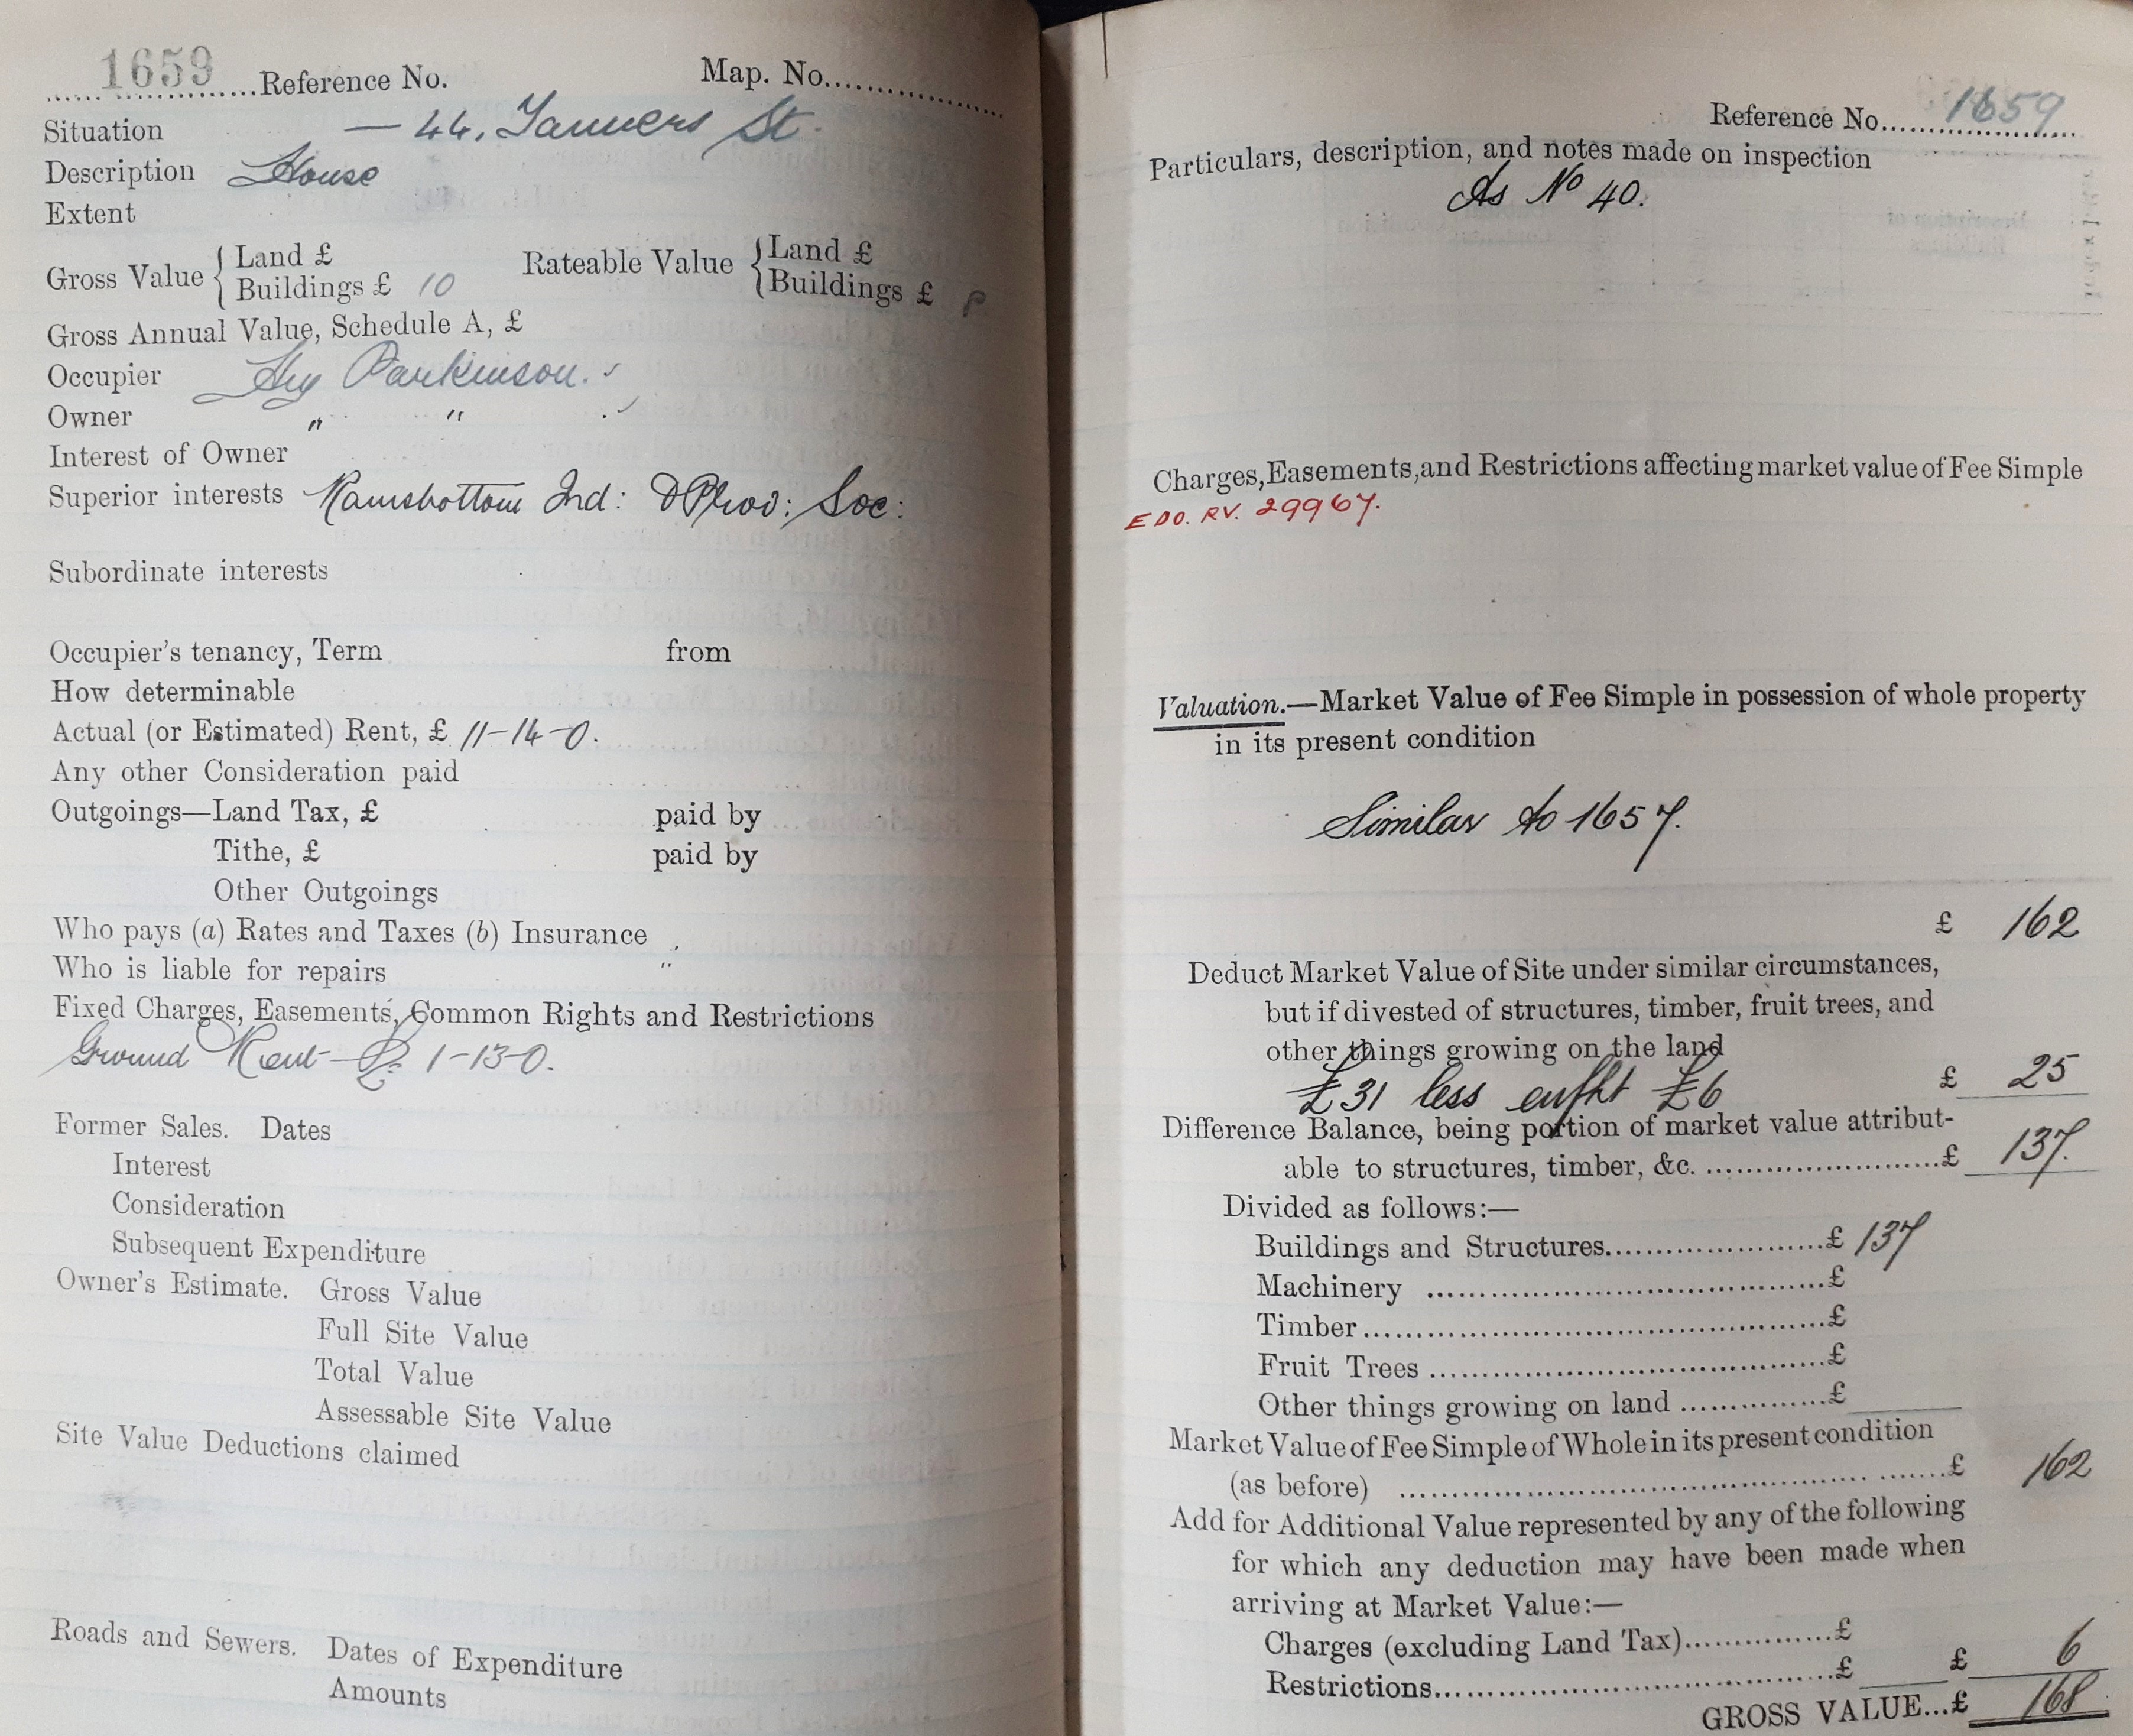 1659 Reference No. Map. No.
Situation — 44, Tanners St.
Description House
Extent
Gross Value { Land £
Buildings £ 10
Rateable Value { Land £
Buildings £
Gross Annual Value, Schedule A, £
Occupier Hy Parkinson.
Owner " "
Interest of Owner
Superior interests Ramsbottom Ind: & Prov: Soc:
Subordinate interests
Occupier's tenancy, Term from
How determinable
Actual (or Estimated) Rent, £ 11-14-0.
Any other Consideration paid
Outgoings—Land Tax, £ paid by
Tithe, £ paid by
Other Outgoings
Who pays (a) Rates and Taxes (b) Insurance
Who is liable for repairs
Fixed Charges, Easements, Common Rights and Restrictions
Ground Rent £ 1-13-0.
Former Sales. Dates
Interest
Consideration
Subsequent Expenditure
Owner's Estimate. Gross Value
Full Site Value
Total Value
Assessable Site Value
Site Value Deductions claimed
Roads and Sewers. Dates of Expenditure
Amounts
Reference No. 1659
Particulars, description, and notes made on inspection
As No 40.
Charges, Easements, and Restrictions affecting market value of Fee Simple
EDO. RV. 29967.
Valuation.—Market Value of Fee Simple in possession of whole property
in its present condition
Similar to 1657.
£ 162
Deduct Market Value of Site under similar circumstances,
but if divested of structures, timber, fruit trees, and
other things growing on the land
£31 less £6 £ 25
Difference Balance, being portion of market value attribut-
able to structures, timber, &c. £ 137.
Divided as follows:—
Buildings and Structures £ 137
Machinery £
Timber £
Fruit Trees £
Other things growing on land £
Market Value of Fee Simple of Whole in its present condition
(as before) £ 162
Add for Additional Value represented by any of the following
for which any deduction may have been made when
arriving at Market Value:—
Charges (excluding Land Tax) £
Restrictions £ £ 6
GROSS VALUE...£ 168